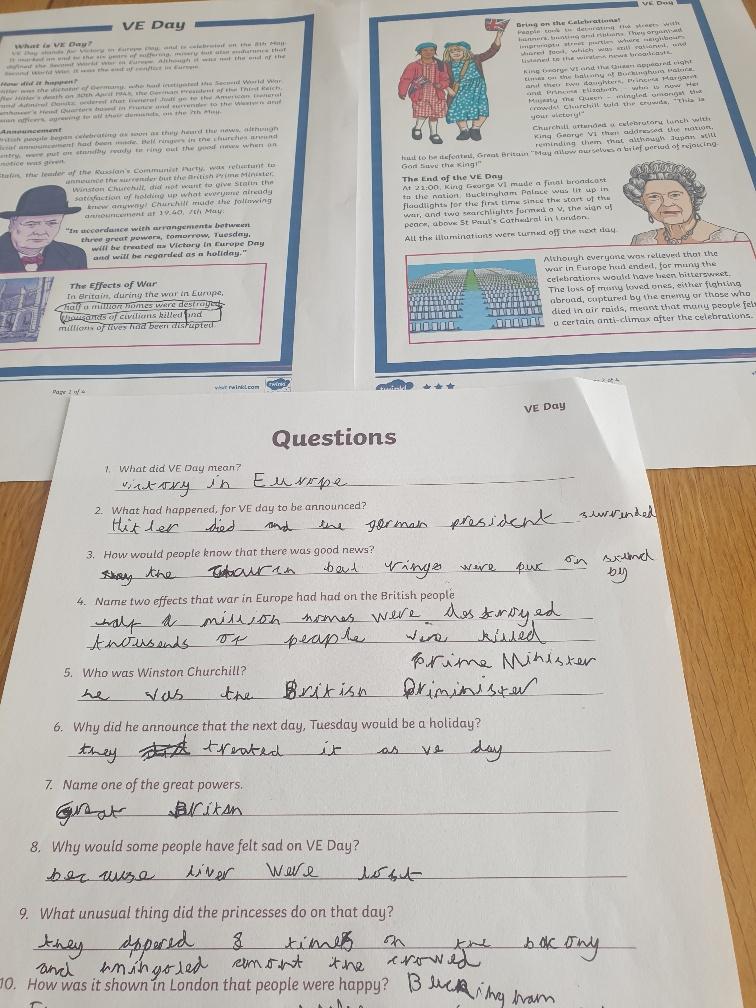 VE Day
What is VE Day?
VE Day stands for Victory in Europe Day, and is celebrated on the 8th May.
It marked an end to the six years of suffering, misery but also endurance that
defined the Second World War in Europe. Although it was not the end of the
Second World War, it was the end of conflict in Europe.
How did it happen?
Hitler was the dictator of Germany, who had instigated the Second World War.
After Hitler's death on 30th April 1945, the German President of the Third Reich,
Grand Admiral Donitz, ordered that General Jodl go to the American General
Eisenhower's Head Quarters based in France and surrender to the Western and
officers, agreeing to all their demands, on the 7th May.
Announcement
British people began celebrating as soon as they heard the news, although
official announcement had been made. Bell ringers in the churches around
country, were put on standby ready to ring out the good news when an
notice was given.
Stalin, the leader of the Russian's Communist Party, was reluctant to
announce the surrender but the British Prime Minister,
Winston Churchill, did not want to give Stalin the
satisfaction of holding up what everyone already
knew anyway! Churchill made the following
announcement at 19.40, 7th May:
"In accordance with arrangements between
three great powers, tomorrow, Tuesday,
will be treated as Victory in Europe Day
and will be regarded as a holiday."
The Effects of War
In Britain, during the war in Europe,
half a million homes were destroyed,
thousands of civilians killed and
millions of lives had been disrupted.
Page 1 of 4
visit twinkl.com
twinkl
VE Day
Bring on the Celebrations!
People took to decorating the streets with
banners, bunting and ribbons. They organised
impromptu street parties where neighbours
shared food, which was still rationed, and
listened to the wireless news broadcasts.
King George VI and the Queen appeared eight
times on the balcony of Buckingham Palace,
and their two daughters, Princess Margaret
and Princess Elizabeth - who is now Her
Majesty the Queen - mingled amongst the
crowds! Churchill told the crowds, "This is
your victory!"
Churchill attended a celebratory lunch with
King George VI then addressed the nation,
reminding them that although Japan still
had to be defeated, Great Britain "May allow ourselves a brief period of rejoicing.
God Save the King!"
The End of the VE Day
At 21:00, King George VI made a final broadcast
to the nation. Buckingham Palace was lit up in
floodlights for the first time since the start of the
war, and two searchlights formed a V, the sign of
peace, above St Paul's Cathedral in London.
All the illuminations were turned off the next day.
Although everyone was relieved that the
war in Europe had ended, for many the
celebrations would have been bittersweet.
The loss of many loved ones, either fighting
abroad, captured by the enemy or those who
died in air raids, meant that many people felt
a certain anti-climax after the celebrations.
twinkl
VE Day
Questions
1. What did VE Day mean?
victory in Europe
2. What had happened, for VE day to be announced?
Hitler died and the german president surrended
3. How would people know that there was good news?
the bel ringes were put on stand
by
4. Name two effects that war in Europe had had on the British people
half a million homes were destroyed
thousends of peaple were killed
Prime Minister
5. Who was Winston Churchill?
he was the British Priminister
6. Why did he announce that the next day, Tuesday would be a holiday?
they treated it as ve day
7. Name one of the great powers.
Great Britan
8. Why would some people have felt sad on VE Day?
because liver were lost
9. What unusual thing did the princesses do on that day?
they appered 8 times on the bakony
and mingoled amont the crowed
10. How was it shown in London that people were happy? Buckingham